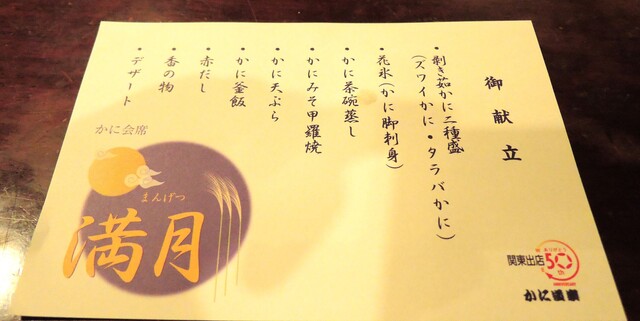 御献立
・剥き茹かに二種盛
(ズワイかに・タラバかに)
・花氷(かに脚刺身)
・かに茶碗蒸し
・かにみそ甲羅焼
・かに天ぷら
・かに釜飯
・赤だし
・香の物
・デザート
かに会席
まんげつ
満月
関東出店
ありがとう
50th
ANNIVERSARY
かに道楽